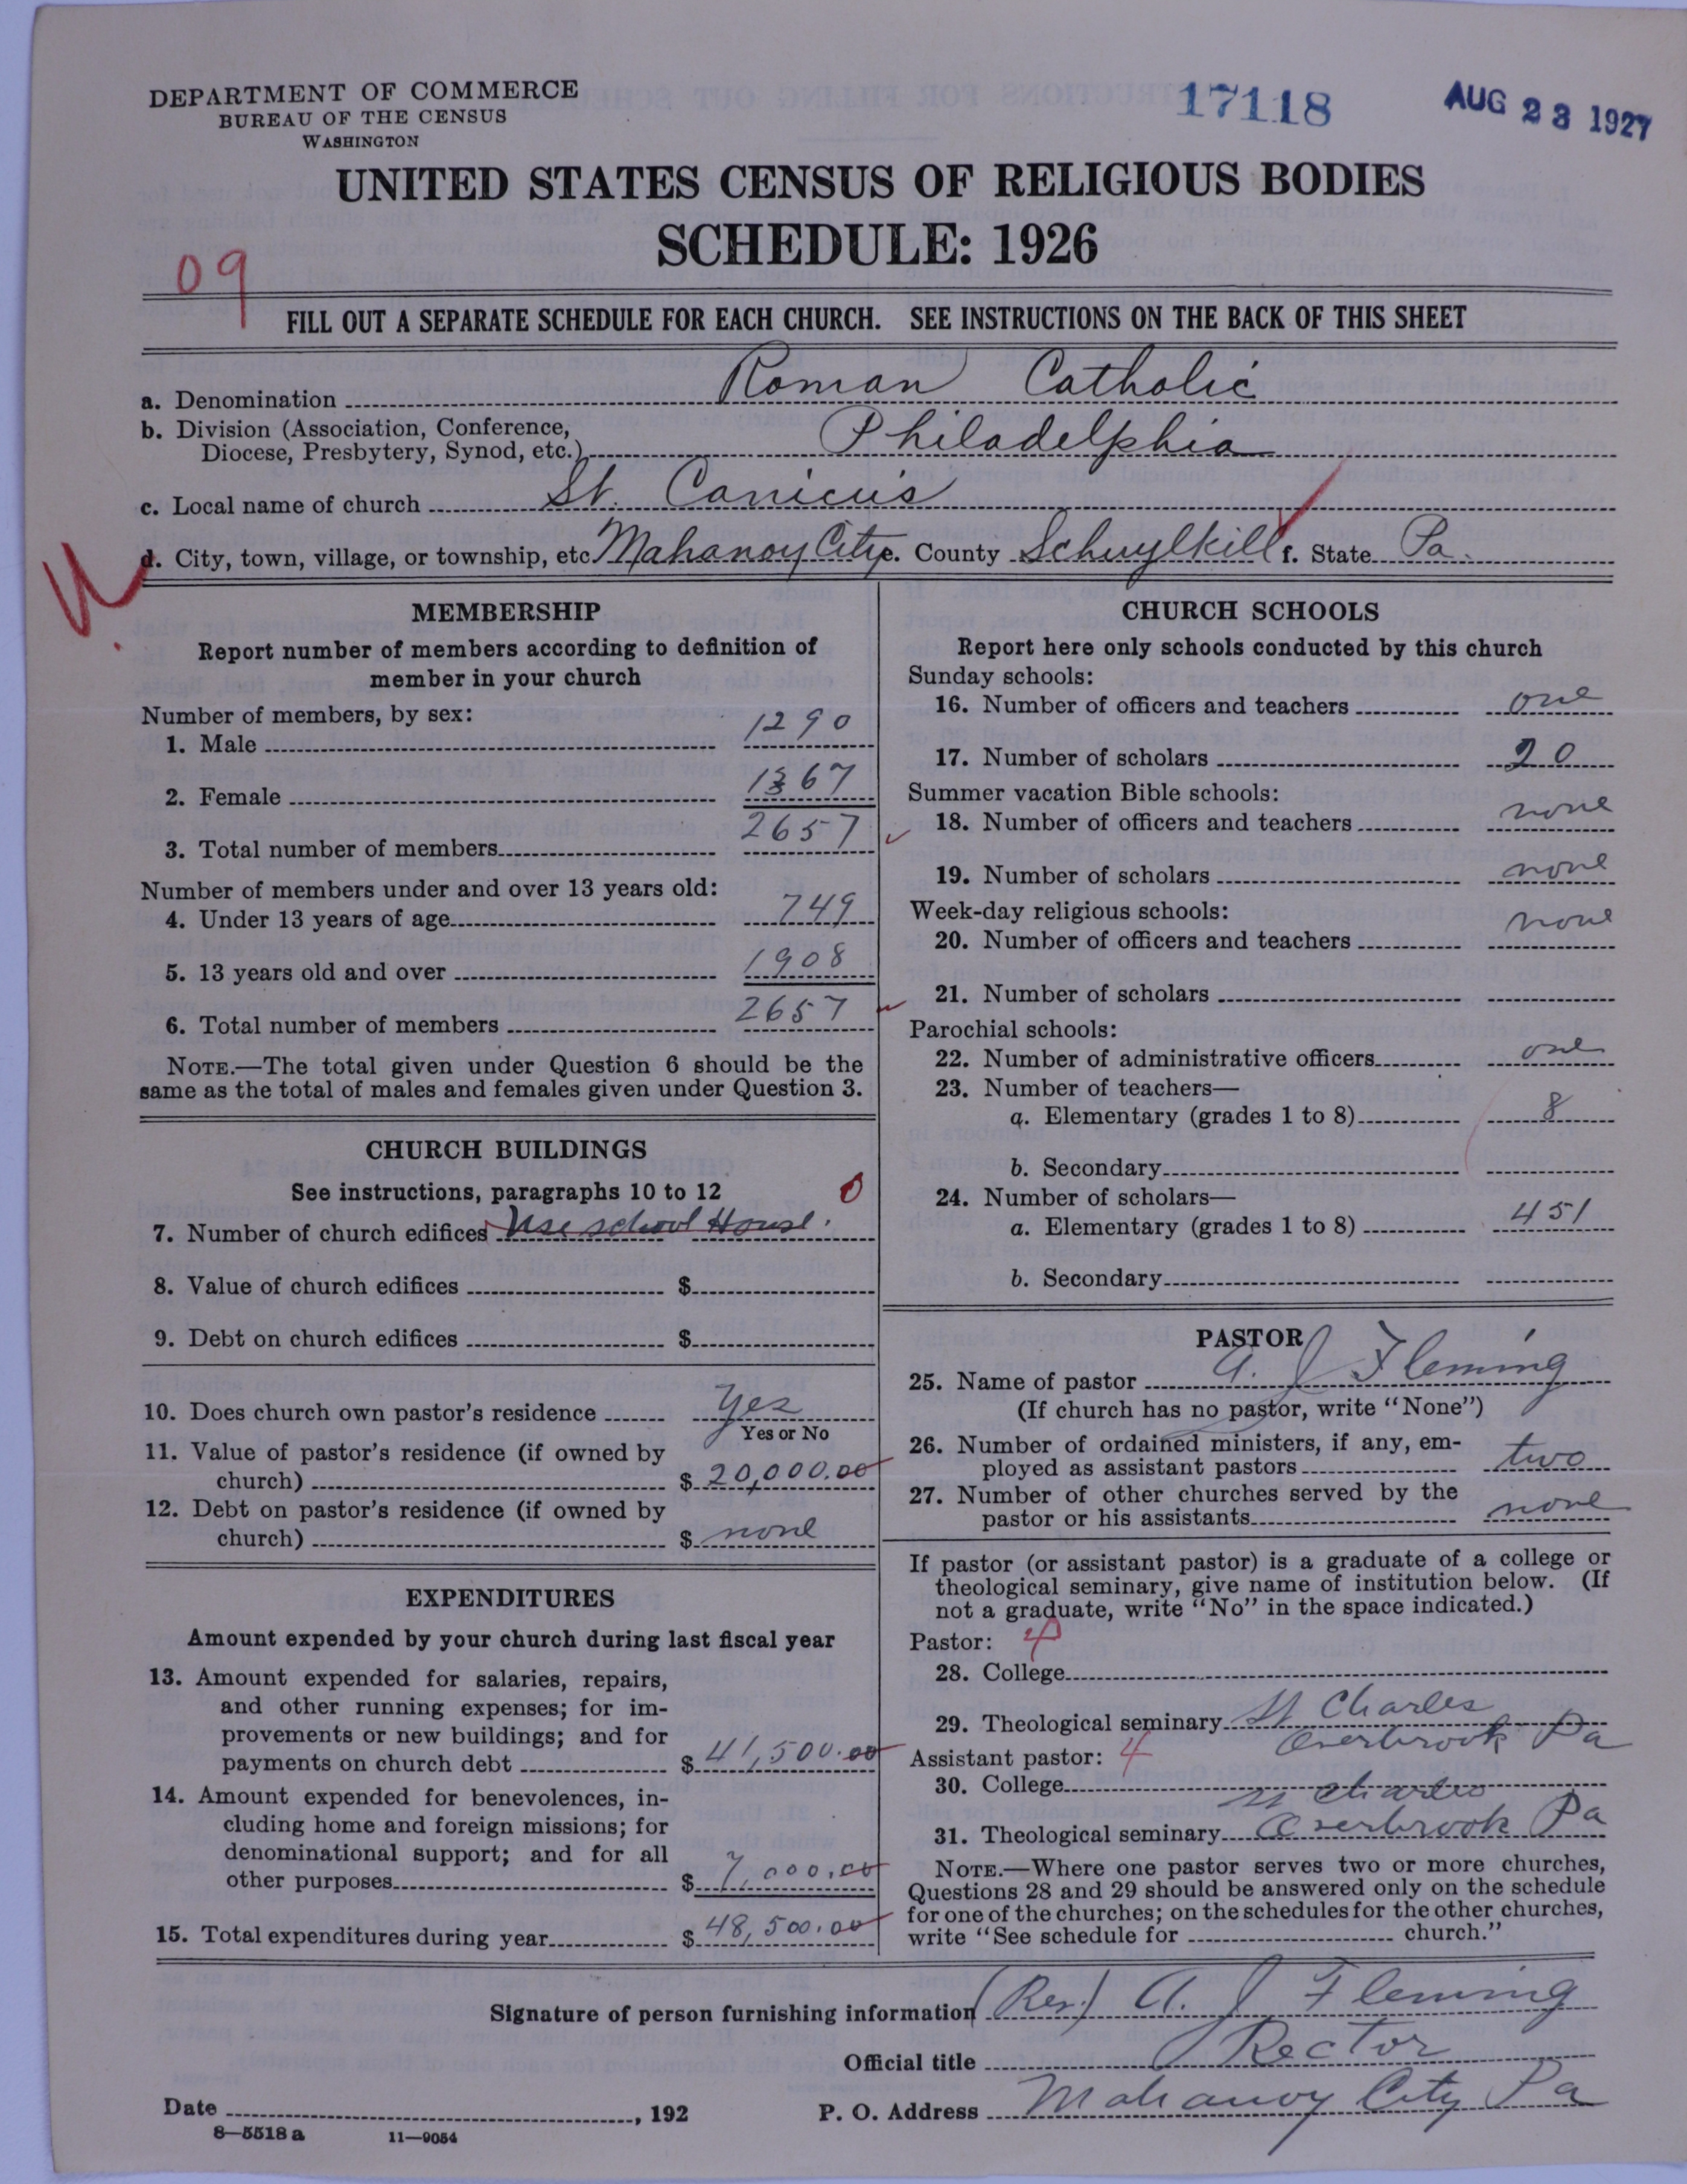 DEPARTMENT OF COMMERCE
BUREAU OF THE CENSUS
WASHINGTON
17118
AUG 23 1927
UNITED STATES CENSUS OF RELIGIOUS BODIES
SCHEDULE: 1926
09
FILL OUT A SEPARATE SCHEDULE FOR EACH CHURCH. SEE INSTRUCTIONS ON THE BACK OF THIS SHEET
a. Denomination Roman Catholic
b. Division (Association, Conference,
Diocese, Presbytery, Synod, etc.) Philadelphia
c. Local name of church St. Canicus
d. City, town, village, or township, etc. Mahanoy City e. County Schuylkill f. State Pa.
MEMBERSHIP
Report number of members according to definition of
member in your church
Number of members, by sex:
1. Male 1290
2. Female 1367
3. Total number of members 2657
Number of members under and over 13 years old:
4. Under 13 years of age 749
5. 13 years old and over 1908
6. Total number of members 2657
NOTE.—The total given under Question 6 should be the
same as the total of males and females given under Question 3.
CHURCH BUILDINGS
See instructions, paragraphs 10 to 12
0
7. Number of church edifices Use school House.
8. Value of church edifices $
9. Debt on church edifices $
10. Does church own pastor's residence Yes
Yes or No
11. Value of pastor's residence (if owned by
church) $ 20,000.00
12. Debt on pastor's residence (if owned by
church) $ none
EXPENDITURES
Amount expended by your church during last fiscal year
13. Amount expended for salaries, repairs,
and other running expenses; for im-
provements or new buildings; and for
payments on church debt $ 41,500.00
14. Amount expended for benevolences, in-
cluding home and foreign missions; for
denominational support; and for all
other purposes $ 7,000.00
15. Total expenditures during year $ 48,500.00
CHURCH SCHOOLS
Report here only schools conducted by this church
Sunday schools:
16. Number of officers and teachers one
17. Number of scholars 20
Summer vacation Bible schools:
18. Number of officers and teachers none
19. Number of scholars none
Week-day religious schools:
20. Number of officers and teachers none
21. Number of scholars
Parochial schools:
22. Number of administrative officers one
23. Number of teachers—
a. Elementary (grades 1 to 8) 8
b. Secondary
24. Number of scholars—
a. Elementary (grades 1 to 8) 451
b. Secondary
PASTOR
25. Name of pastor A. J Fleming
(If church has no pastor, write "None")
26. Number of ordained ministers, if any, em-
ployed as assistant pastors two
27. Number of other churches served by the
pastor or his assistants none
If pastor (or assistant pastor) is a graduate of a college or
theological seminary, give name of institution below. (If
not a graduate, write "No" in the space indicated.)
Pastor: 4
28. College
29. Theological seminary St Charles
Overbrook Pa
Assistant pastor: 4
30. College
St Charles
31. Theological seminary Overbrook Pa
NOTE.—Where one pastor serves two or more churches,
Questions 28 and 29 should be answered only on the schedule
for one of the churches; on the schedules for the other churches,
write "See schedule for church."
Signature of person furnishing information (Rev.) A. J Fleming
Official title Rector
Date , 192 P. O. Address Mahanoy City Pa
8—5518 a 11—9054